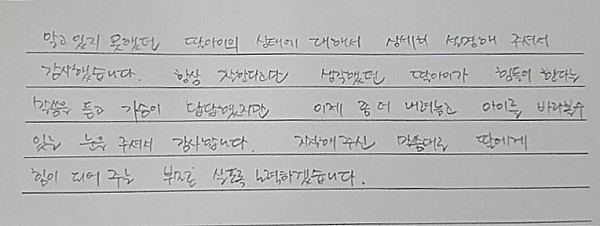 알고 있지 못했던 딸아이의 상태에 대해서 상세히 설명해 주셔서
감사했습니다. 항상 착한다고만 생각했던 딸아이가 힘들어 한다는
말씀을 듣고 가슴이 답답했지만 이제 좀 더 내려놓고 아이를 바라볼수
있는 눈을 주셔서 감사합니다. 지적해주신 말씀대로 딸에게
힘이 되어 주는 노력하겠습니다.